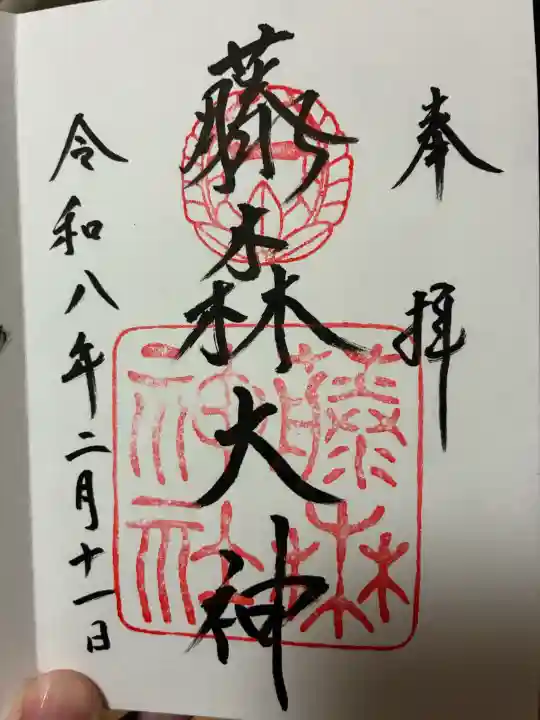 奉拝
藤森大神
令和八年二月十一日
藤森
神社